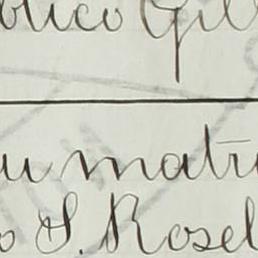 blico Gil
su matri
o S. Rosel